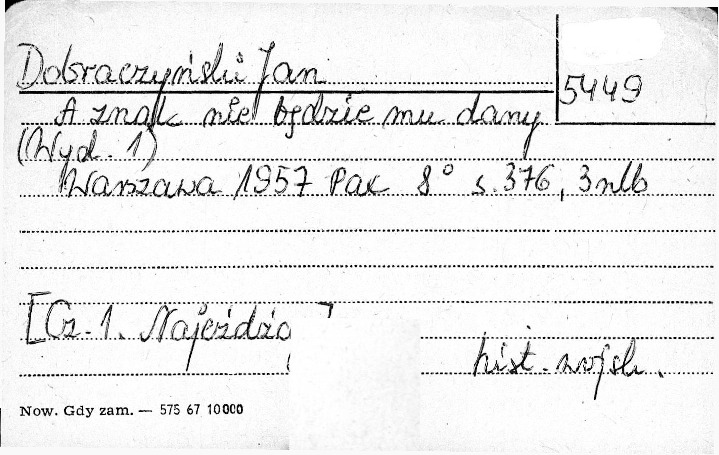 Dobraczyński Jan
5449
A znak nie będzie mu dany
(Wyd. 1)
Warszawa 1957 Pax 8° s. 376, 3 nlb
[Cz. 1. Najeźdźc ]
hist.
Now. Gdy zam. — 575 67 10000